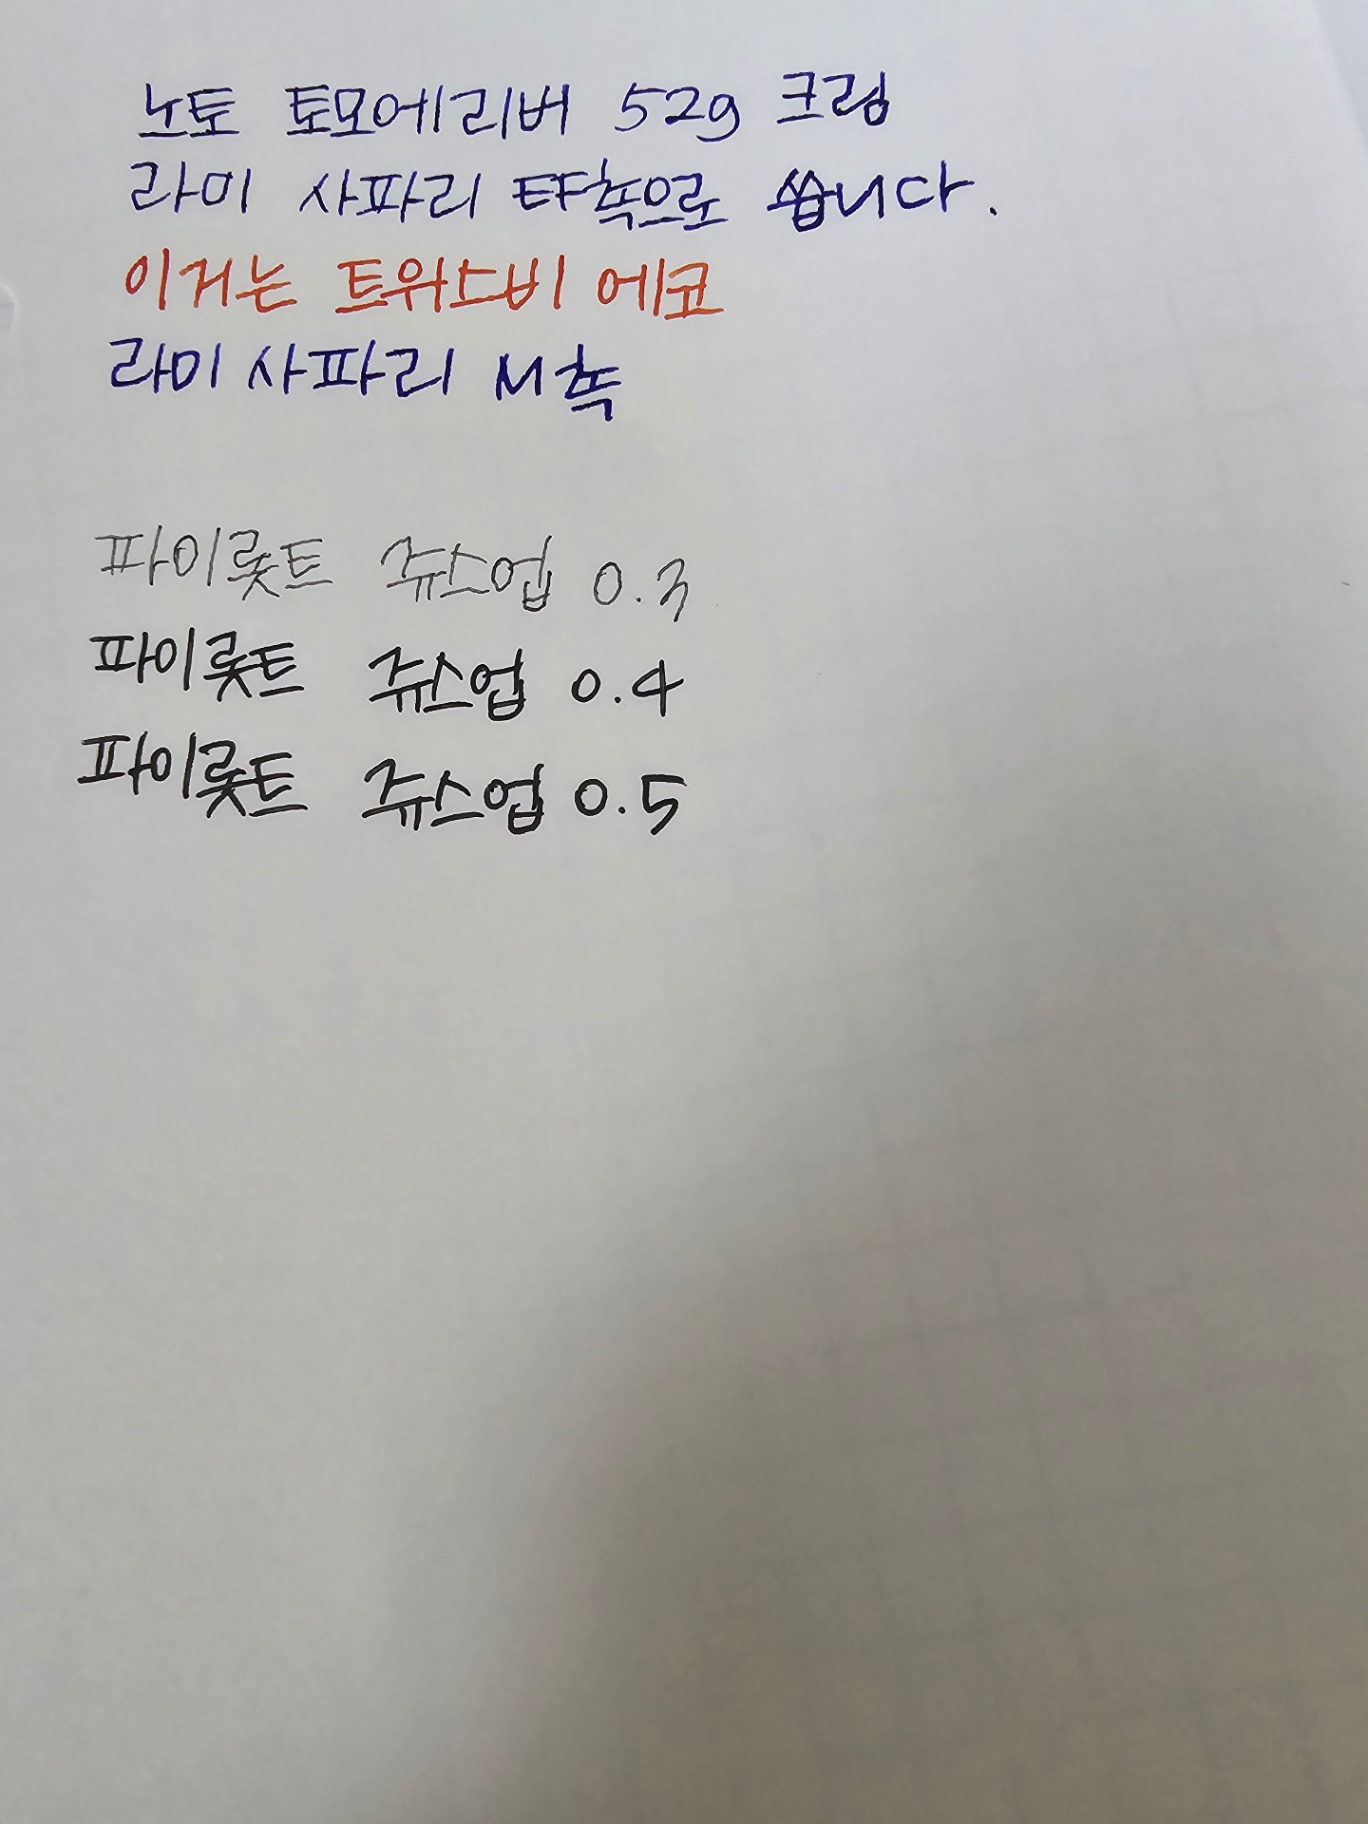 노토 토모에리버 52g 크림
라미 사파리 EF촉으로 씁니다.
이거는 트위스비 에코
라미 사파리 M촉
파이롯트 쥬스업 0.3
파이롯트 쥬스업 0.4
파이롯트 쥬스업 0.5